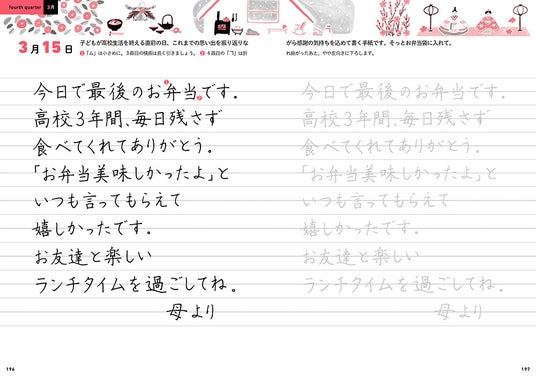 fourth quarter 3月
3月15日
子どもが高校生活を終える直前の日、これまでの思い出を振り返りな
がら感謝の気持ちを込めて書く手紙です。そっとお弁当袋に入れて。
❶「ム」は小さめに。3画目の横画は長く引きましょう。 ❷ 4画目の「㇕」は折
れ曲がったあと、やや左向きに下ろします。
今日で最後のお弁当です。
高校3年間、毎日残さず
食べてくれてありがとう。
「お弁当美味しかったよ」と
いつも言ってもらえて
嬉しかったです。
お友達と楽しい
ランチタイムを過ごしてね。
母より
今日で最後のお弁当です。
高校3年間、毎日残さず
食べてくれてありがとう。
「お弁当美味しかったよ」と
いつも言ってもらえて
嬉しかったです。
お友達と楽しい
ランチタイムを過ごしてね。
母より
196
197